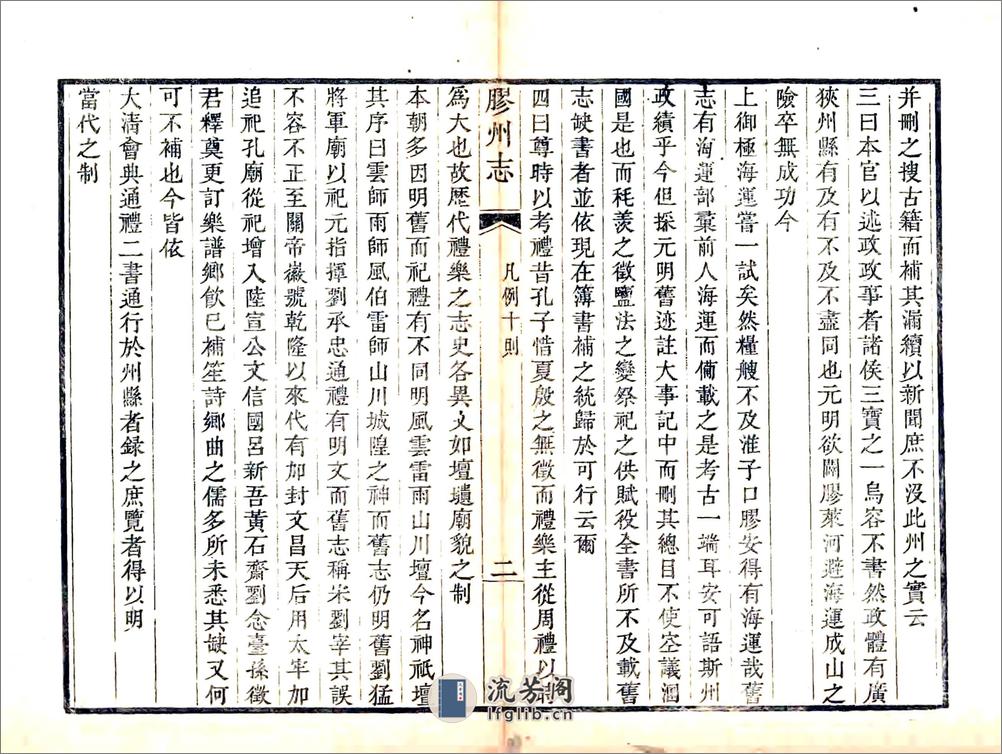 并刪之搜古籍而補其漏續以新聞庶不沒此州之實云
三曰本官以述政政事者諸侯三寶之一烏容不書然政體有廣
狹州縣有及有不及不盡同也元明欲闢膠萊河避海運成山之
險卒無成功今
上御極海運嘗一試矣然糧艘不及淮子口膠安得有海運哉舊
志有海運部彙前人海運而備載之是考古一端耳安可語斯州
政績乎今但採元明舊迹註大事記中而刪其總目不使空議溷
國是也而秏羨之徵鹽法之變祭祀之供賦役全書所不及載舊
志缺書者並依現在簿書補之統歸於可行云爾
四曰尊時以考禮昔孔子惜夏殷之無徵而禮樂主從周禮以時
膠州志
凡例十則
二
為大也故歷代禮樂之志史各異文如壇壝廟貌之制
本朝多因明舊而祀禮有不同明風雲雷雨山川壇今名神祇壇
其序曰雲師雨師風伯雷師山川城隍之神而舊志仍明舊劉猛
將軍廟以祀元指揮劉承忠通禮有明文而舊志稱宋劉宰其誤
不容不正至關帝徽號乾隆以來代有加封文昌天后用太牢加
追祀孔廟從祀增入陸宣公文信國呂新吾黃石齋劉念臺孫徵
君釋奠更訂樂譜鄉飲已補笙詩鄉曲之儒多所未悉其缺又何
可不補也今皆依
大清會典通禮二書通行於州縣者錄之庶覽者得以明
當代之制
流芳阁
lfglib.cn